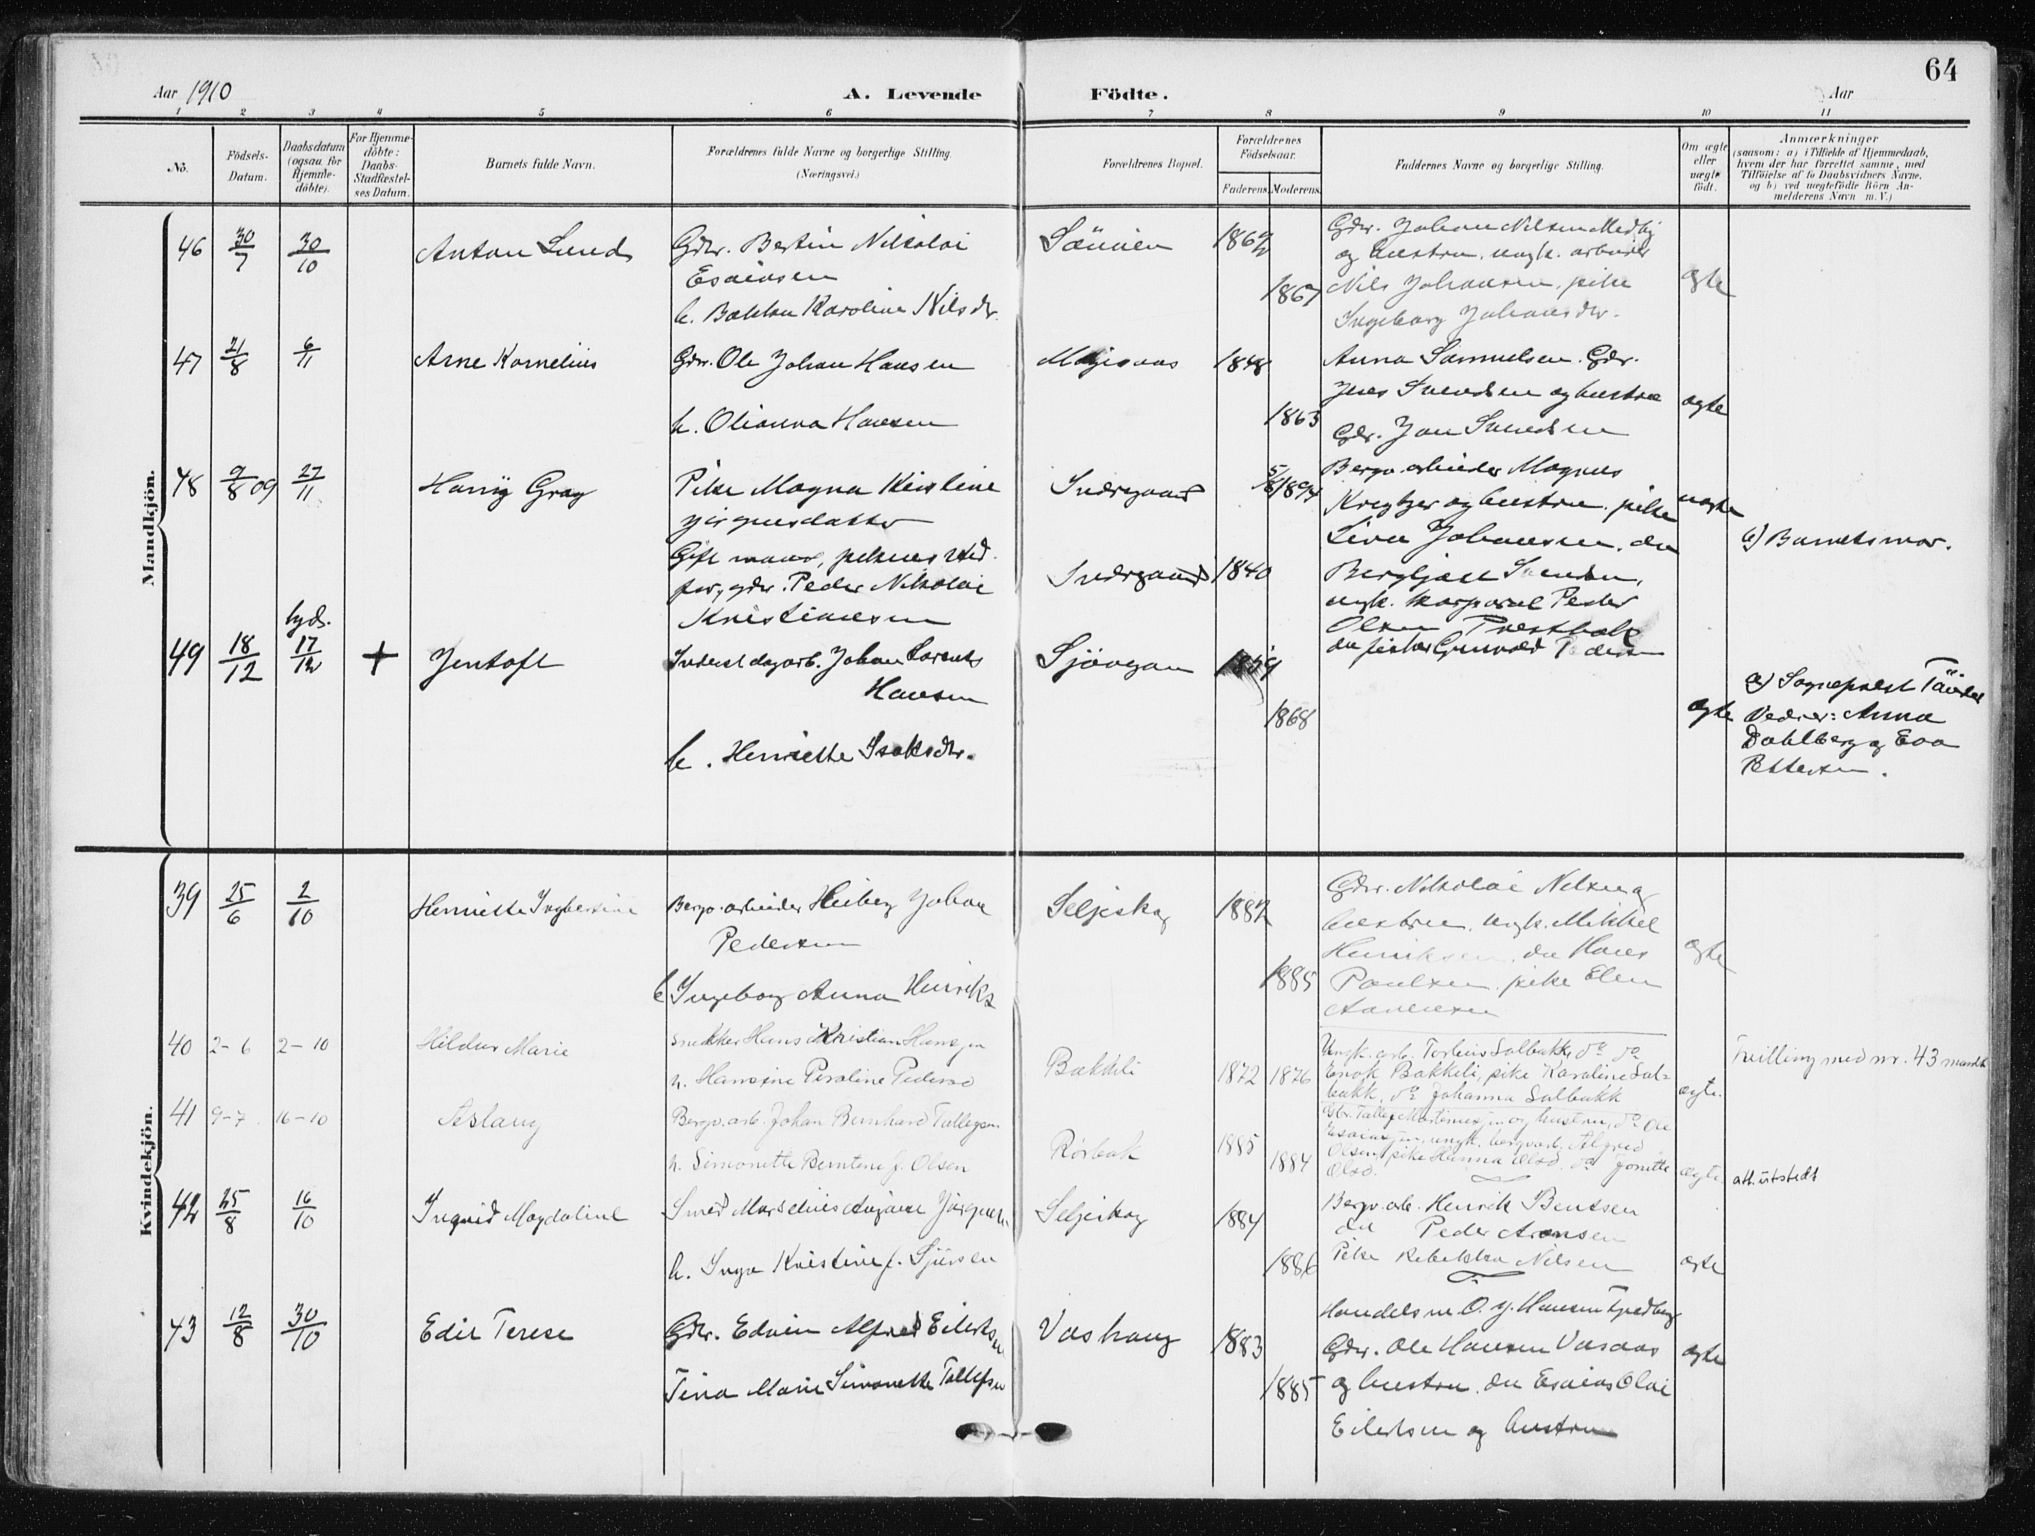 64
Aar 1910
A. Levende Födte.
Aar
1 2 3 4 5 6 7 8 9 10 11
No.
Födsels-
Datum.
Daabsdatum
(ogsaa for
Hjemme-
döbte).
For Hjemme-
döbte:
Daabs-
Stadfæstel-
ses Datum.
Barnets fulde Navn.
Forældrenes fulde Navne og borgerlige Stilling.
(Næringsvei.)
Forældrenes Bopæl.
Forældrenes
Födselsaar.
Faderens. Moderens.
Faddernes Navne og borgerlige Stilling.
Om ægte
eller
uægte
födt.
Anmærkninger
(saasom: a) i Tilfælde af Hjemmedaab,
hvem der har forrettet samme, med
Tilföielse af to Daabsvidners Navne,
og b) ved uægtefödte Börn An-
melderens Navn m. V.)
Mandkjön.
46 30/7 30/10 Anton Lund
Gdr. Bertin Nikolai
Esaiasen
h. Karoline Nilsdr.
1867
Gdr. Johan Nilsen Medby
og hustru, ungk. arbeider
Nils Johansen, pike
Ingeborg Johansdr.
ægte
47 21/8 6/11 Arne Kornelius
Gdr. Ole Johan Hansen
h. Olianna Hansen
1848
1863
Anna Samuelsen. Gdr.
Jens Svendsen og hustru
Gdr. Jan Svendsen
ægte
48 9/8 09 27/11 Harry Gray
Pike Magna Kirstine
Gift mand, pikens sted-
far, gdr. Peder Nikolai
Kristiansen
Indregaard
5/8 1894
Indregaard 1840
Bergv. arbeider Magnus
og hustru, pike
Lina Johansen, do
Bergljot Svendsen,
ungk. korporal Peder
Olsen Præstbakk
do fisker Grunvald Pedersen
uægte
b) Barnets mor.
49 18/12 lyds. 17/12 + Jentoft
Inderst dagarb. Johan Lorents
Hansen
h. Henriette Isaksdr.
Sjövegan 1859
1868
ægte
a) Sogneprest
Vidner: Anna
Dahlberg og Eva
Pettersen.
Kvindekjön.
39 25/6 2/10 Henriette Ingbertine
Bergv. arbeider Heiberg Johan
Pedersen
h Ingeborg Anna Henriks
Seljeskog 1882
1885
Gdr. Nikolai Nilsen og
hustru, ungk. Mikkel
Henriksen, do Hans
Paulsen, pike Elen
ægte
40 2-6 2-10 Hildur Marie
Snekker Hans Kristian Hansen
h. Hansine Peroline Pedersd
Bakkeli 1872 1876
Ungk. arb. Torleus Solbakk, do do
Enok Bakkeli, pike Karoline Sol-
bakk, do Johanna Solbakk
ægte.
Tvilling med nr. 43 mandk
41 9-7 16-10 Aslaug
Bergv. arb. Johan Bernhard Tollefsen
h. Simonette Berntine f. Olsen
Rørbak 1885
1884
Gbr. Tollef Martinussen og hustru, do Ole
Esaiassen, ungk. bergvarb. Algred
Olsen, pike Hanna Olsd. do Jonette
Olsd.
ægte.
att. utstedt
42 25/8 16/10 Ingrid Magdaline
Smed Marselius Jörgensen
h. Inga Kristine f. Sjursen
Seljeskog 1884
1886
Bergv. arb. Henrik Bentsen
do Peder Aronsen
Pike Rebekka Nilsen
ægte
43 12/8 30/10 Edit Terese
Gdr. Edvin Alfred Eilertsen
Tina Marie Simonette Tollefsen
Vashaug 1883
1885
Handelsm O. J. Hansen Fredberg
Gdr. Ole Hansen Vasaas
og hustru, do Esaias Olai
Eilertsen og hustru
ægte